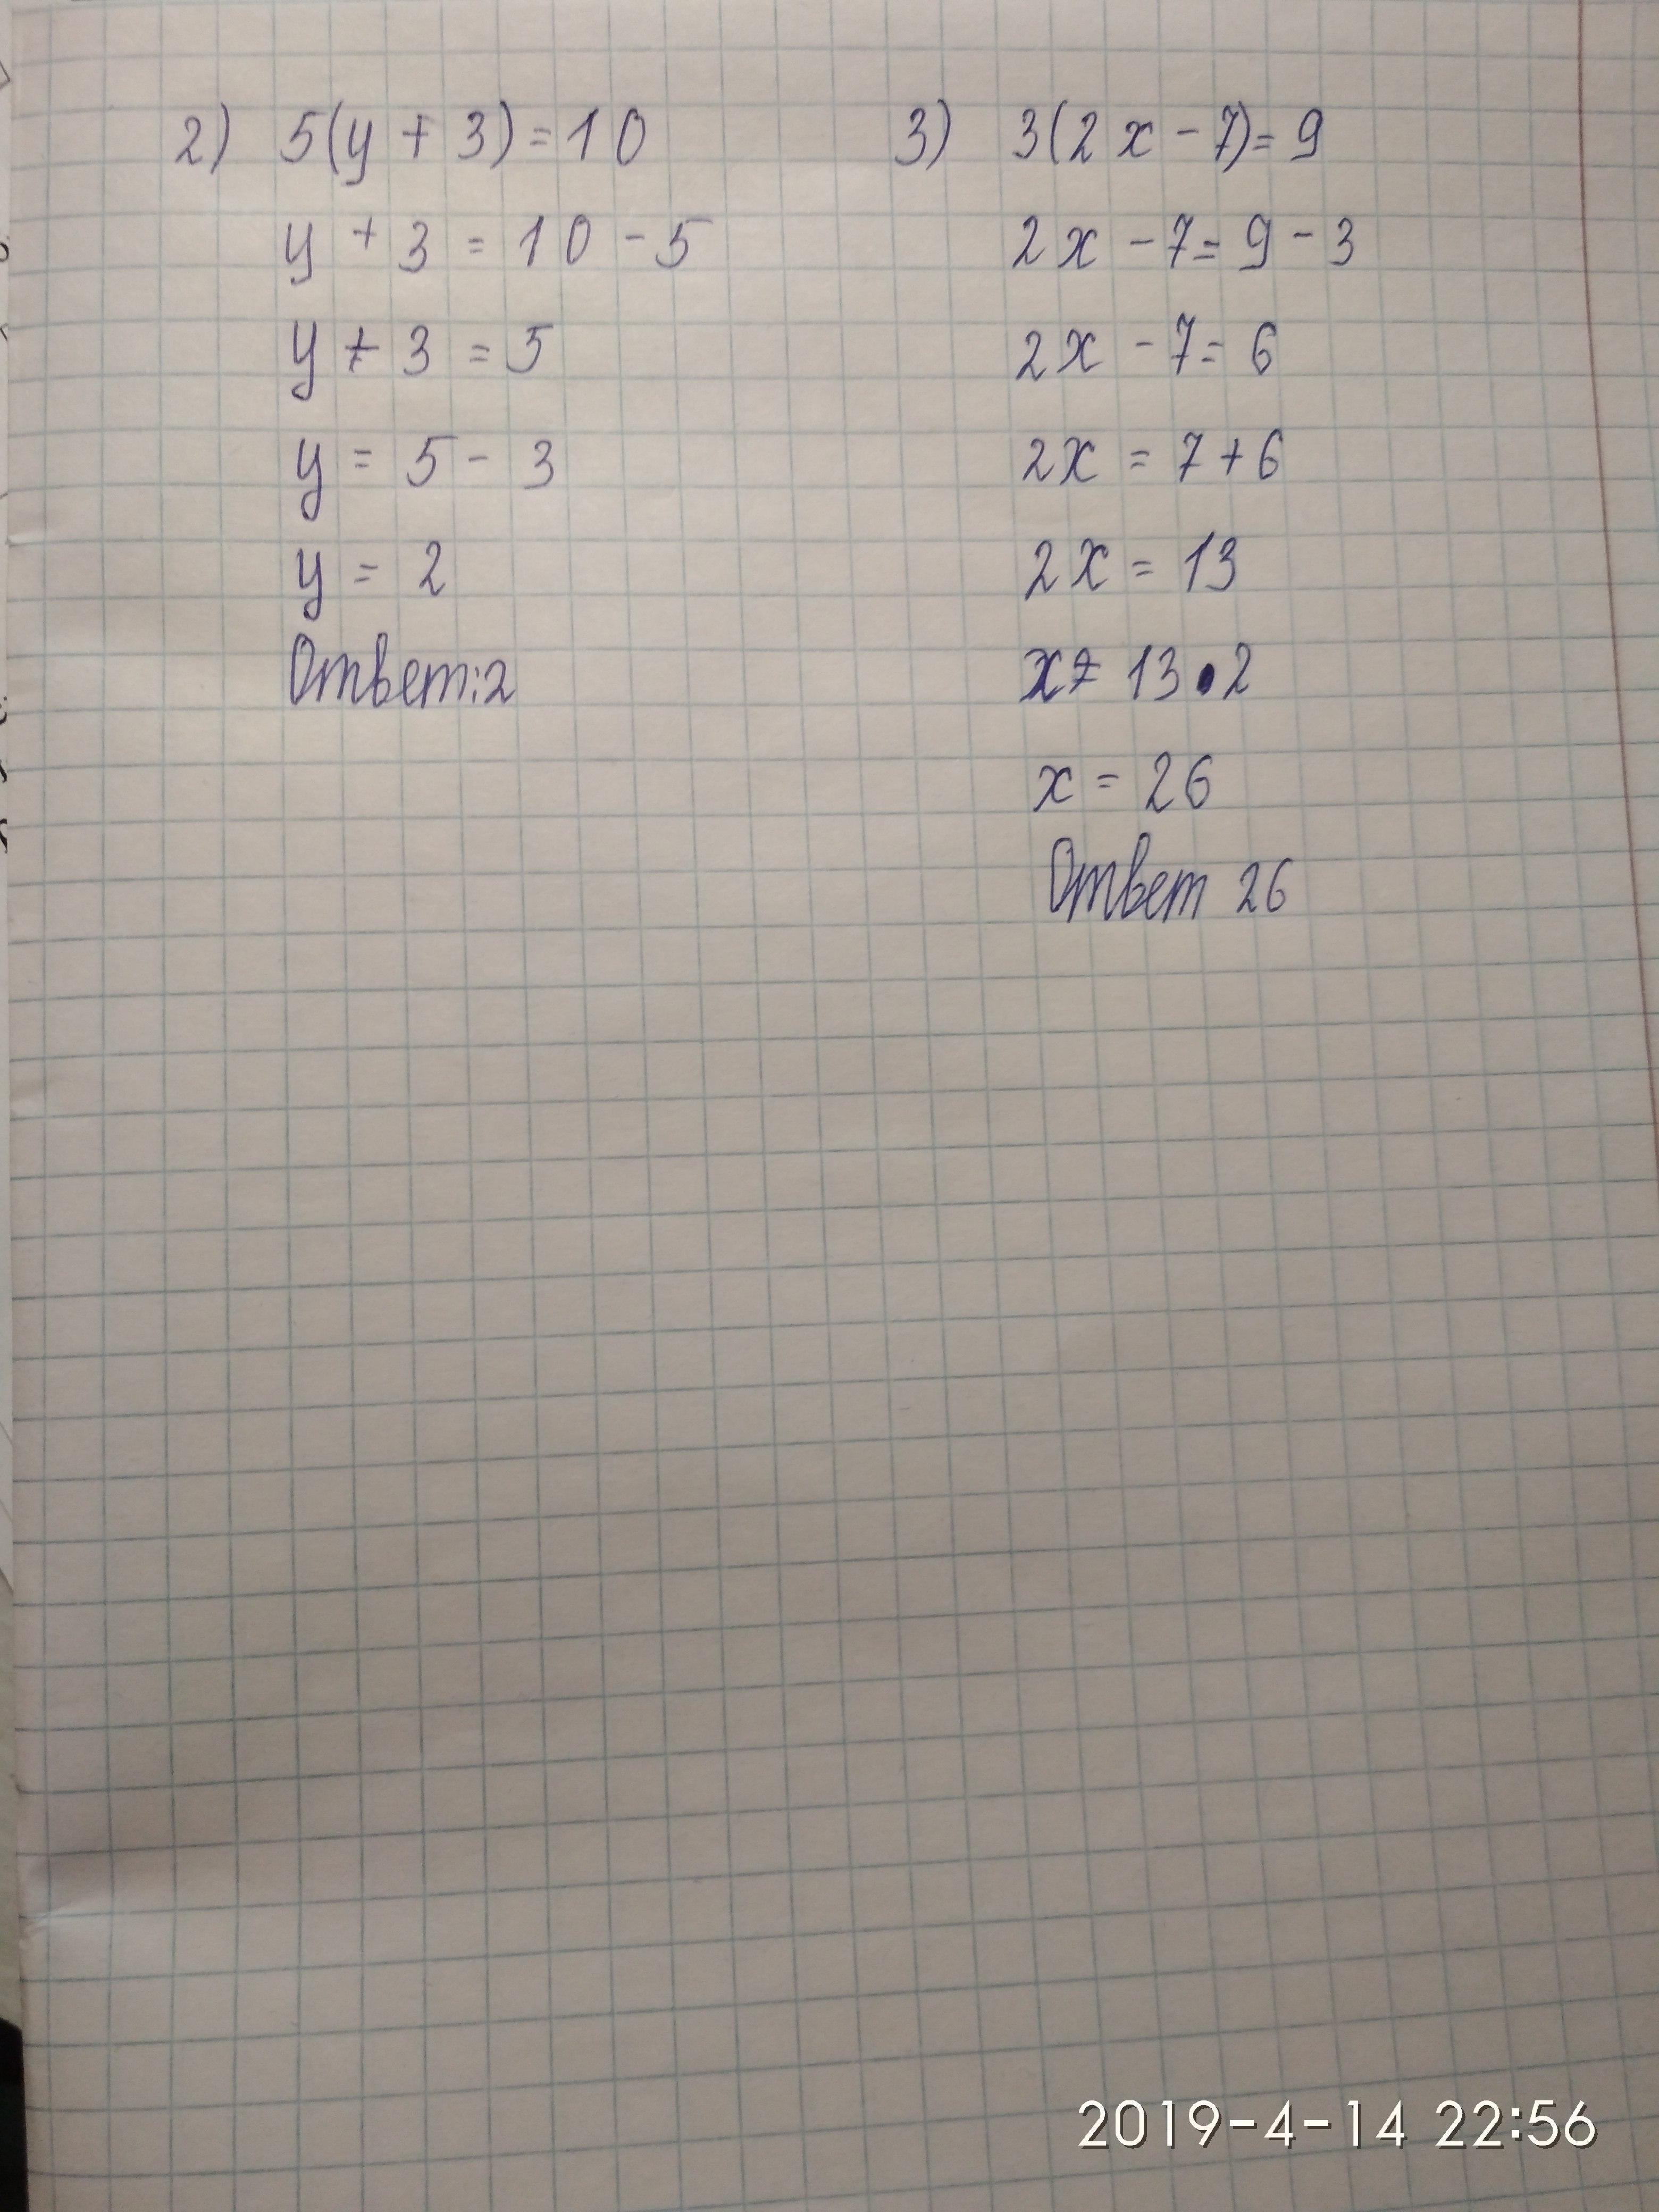 2) 5(y + 3) = 10
y + 3 = 10 - 5
y + 3 = 5
y = 5 - 3
y = 2
Ответ: 2
3) 3(2x - 7) = 9
2x - 7 = 9 - 3
2x - 7 = 6
2x = 7 + 6
2x = 13
x = 13 • 2
x = 26
Ответ 26
2019-4-14 22:56